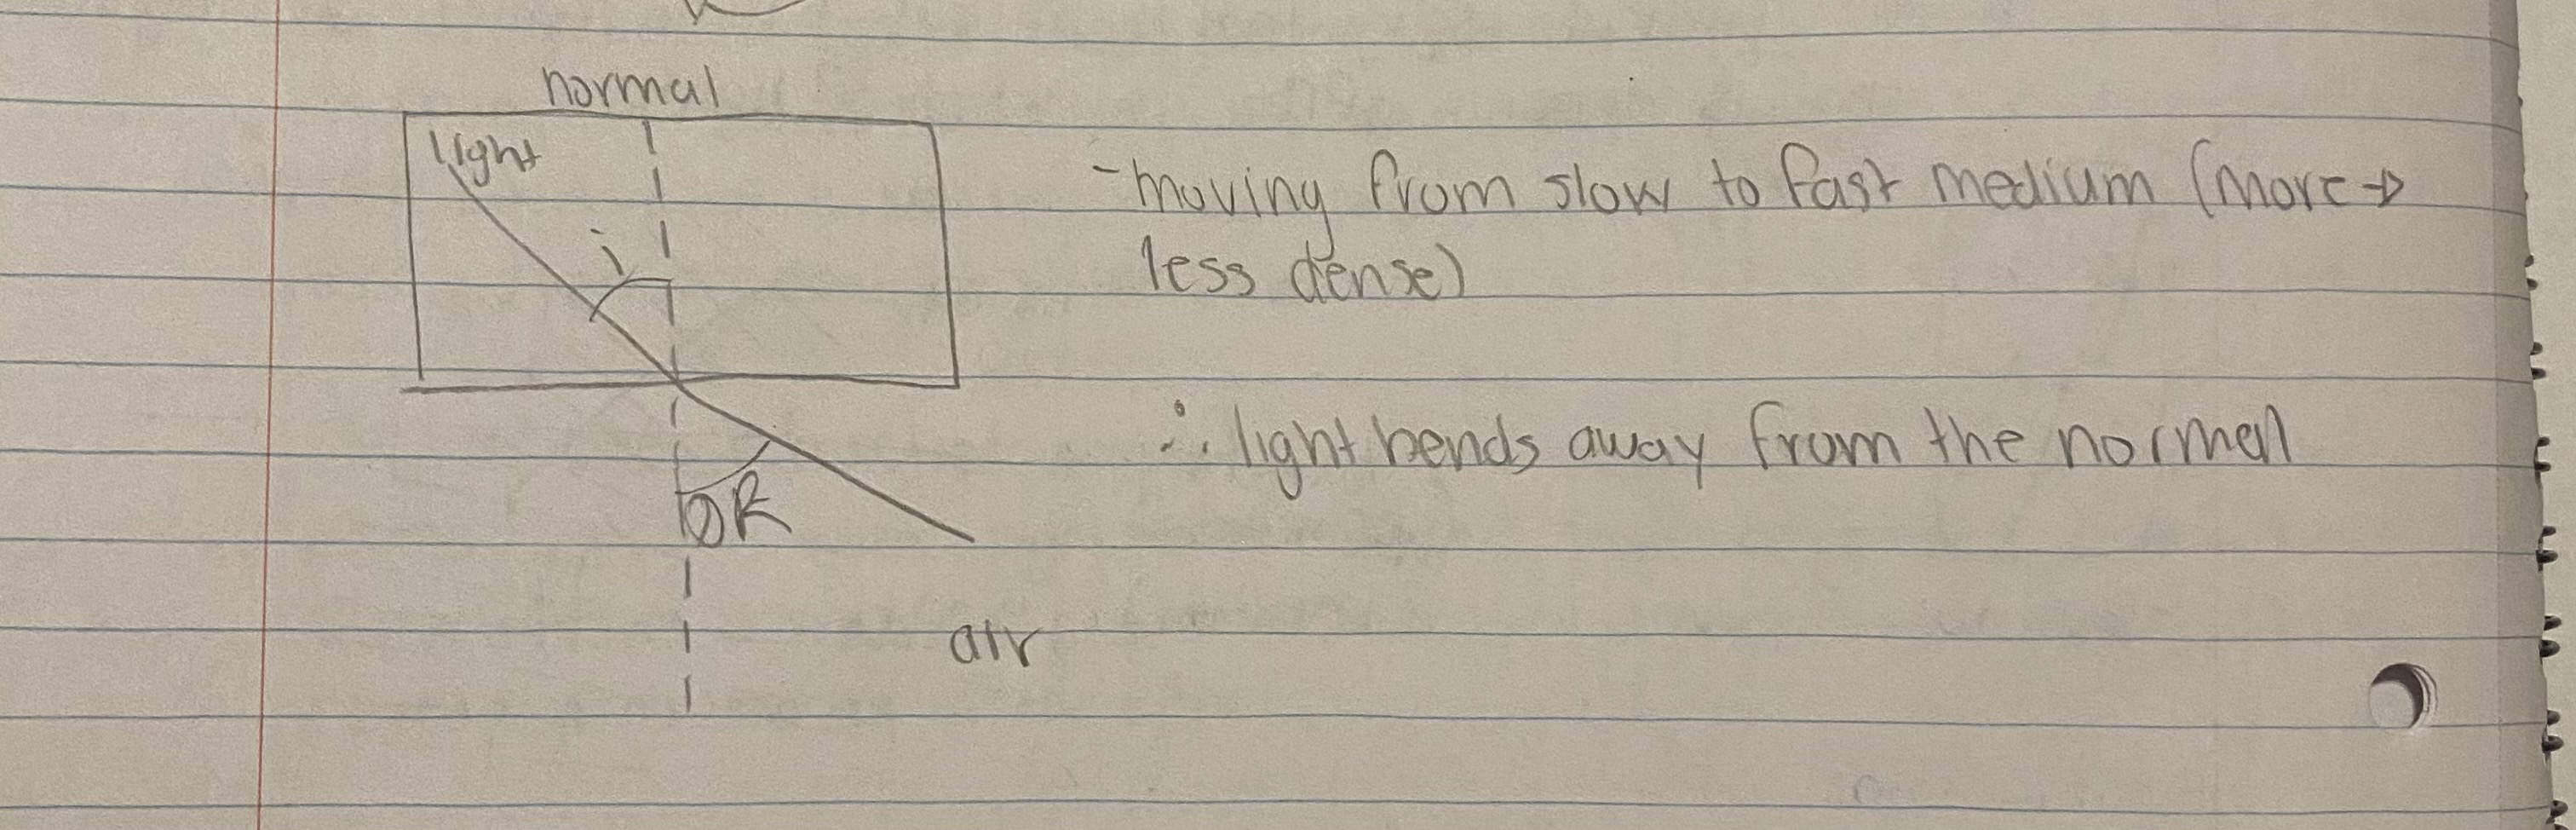 normal
light
i
θR
air
-moving from slow to fast medium (more →
less dense)
∴ light bends away from the normal